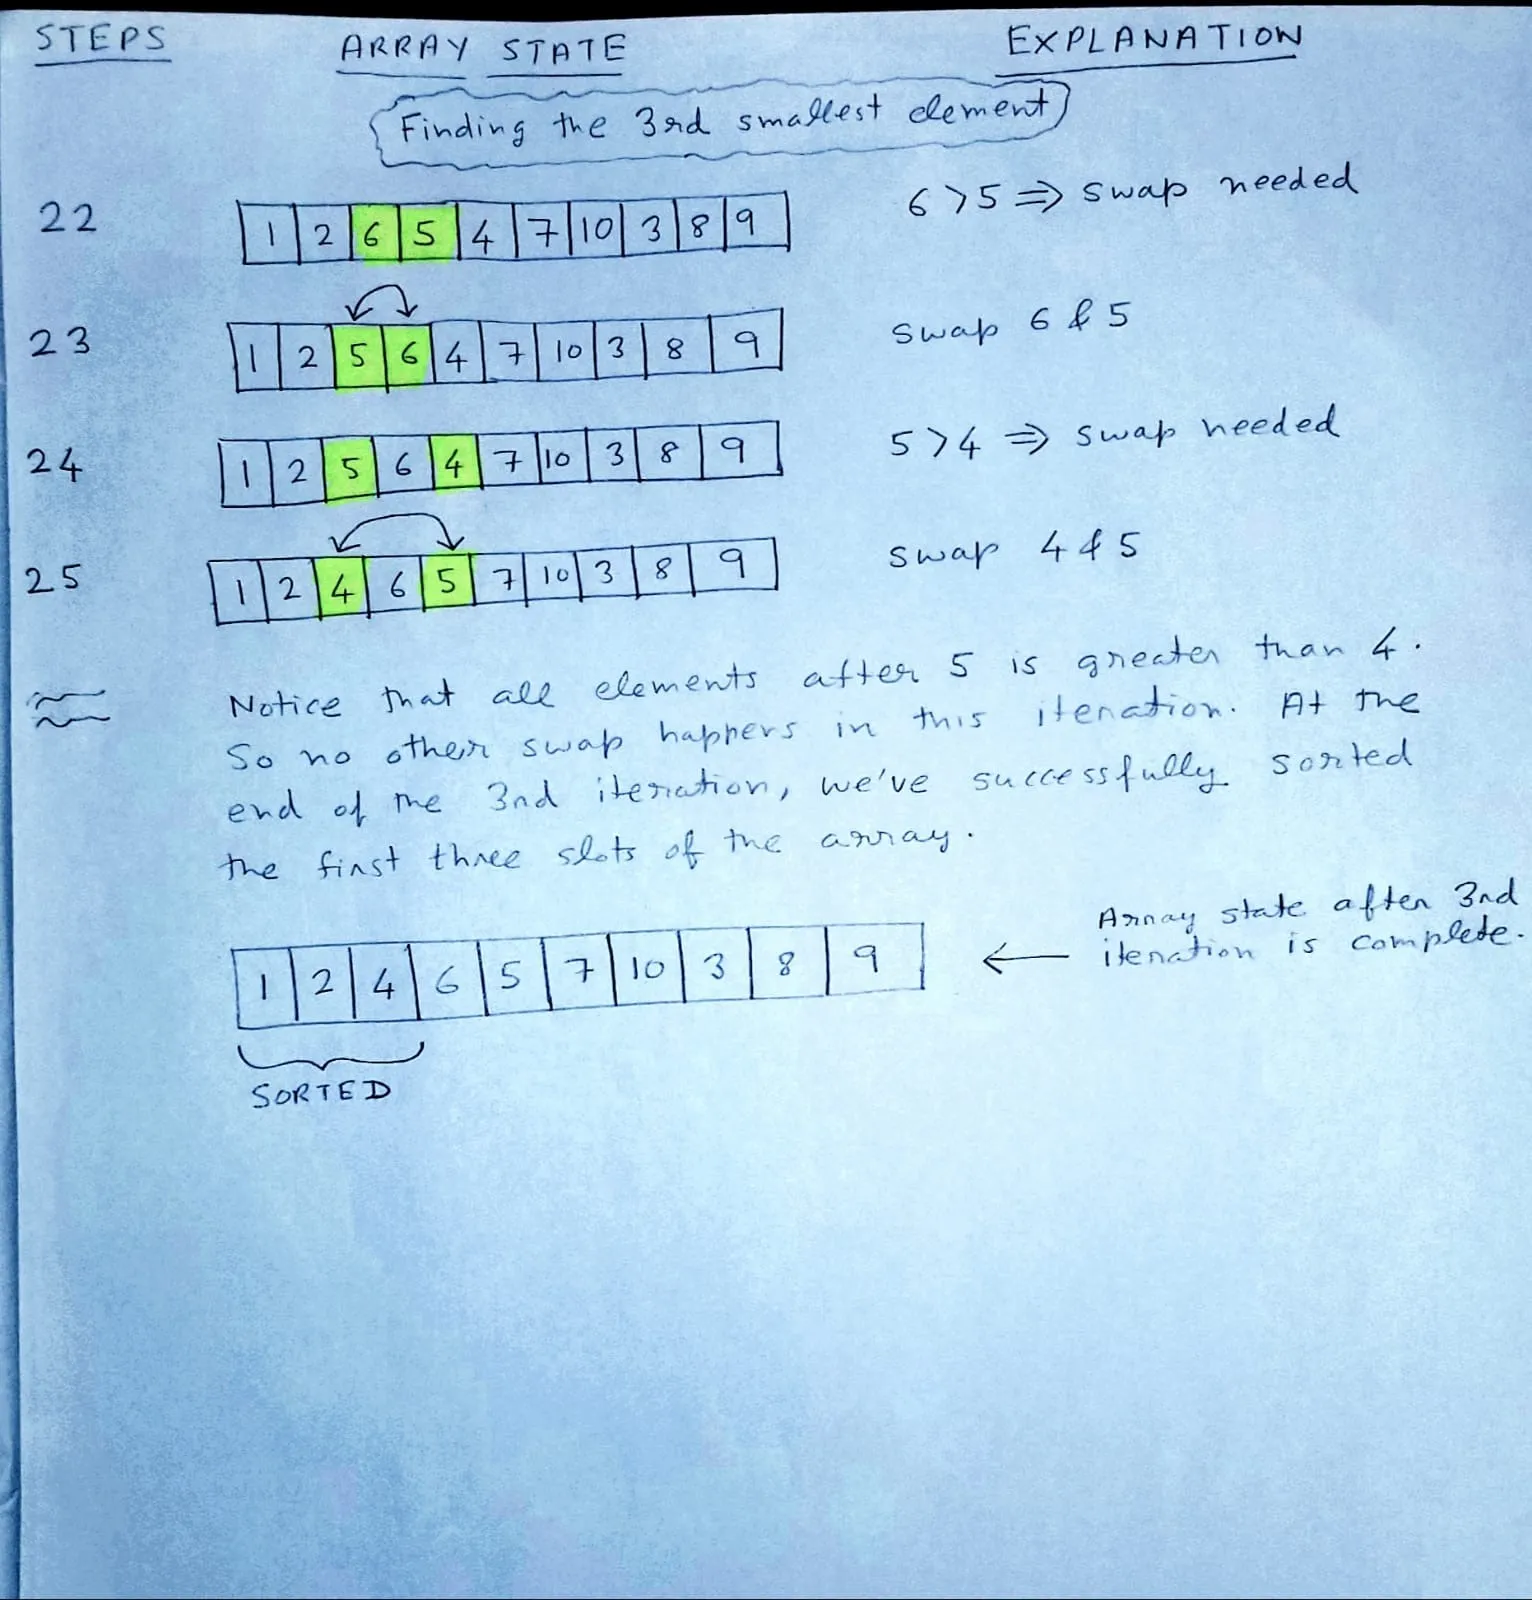 STEPS ARRAY STATE EXPLANATION
Finding the 3rd smallest element
22 1 2 6 5 4 7 10 3 8 9 6 > 5 ⇒ swap needed
23 1 2 5 6 4 7 10 3 8 9 swap 6 & 5
24 1 2 5 6 4 7 10 3 8 9 5 > 4 ⇒ swap needed
25 1 2 4 6 5 7 10 3 8 9 swap 4 & 5
Notice that all elements after 5 is greater than 4.
So no other swap happens in this iteration. At the
end of the 3rd iteration, we've successfully sorted
the first three slots of the array.
Array state after 3rd
1 2 4 6 5 7 10 3 8 9 ← iteration is complete.
SORTED